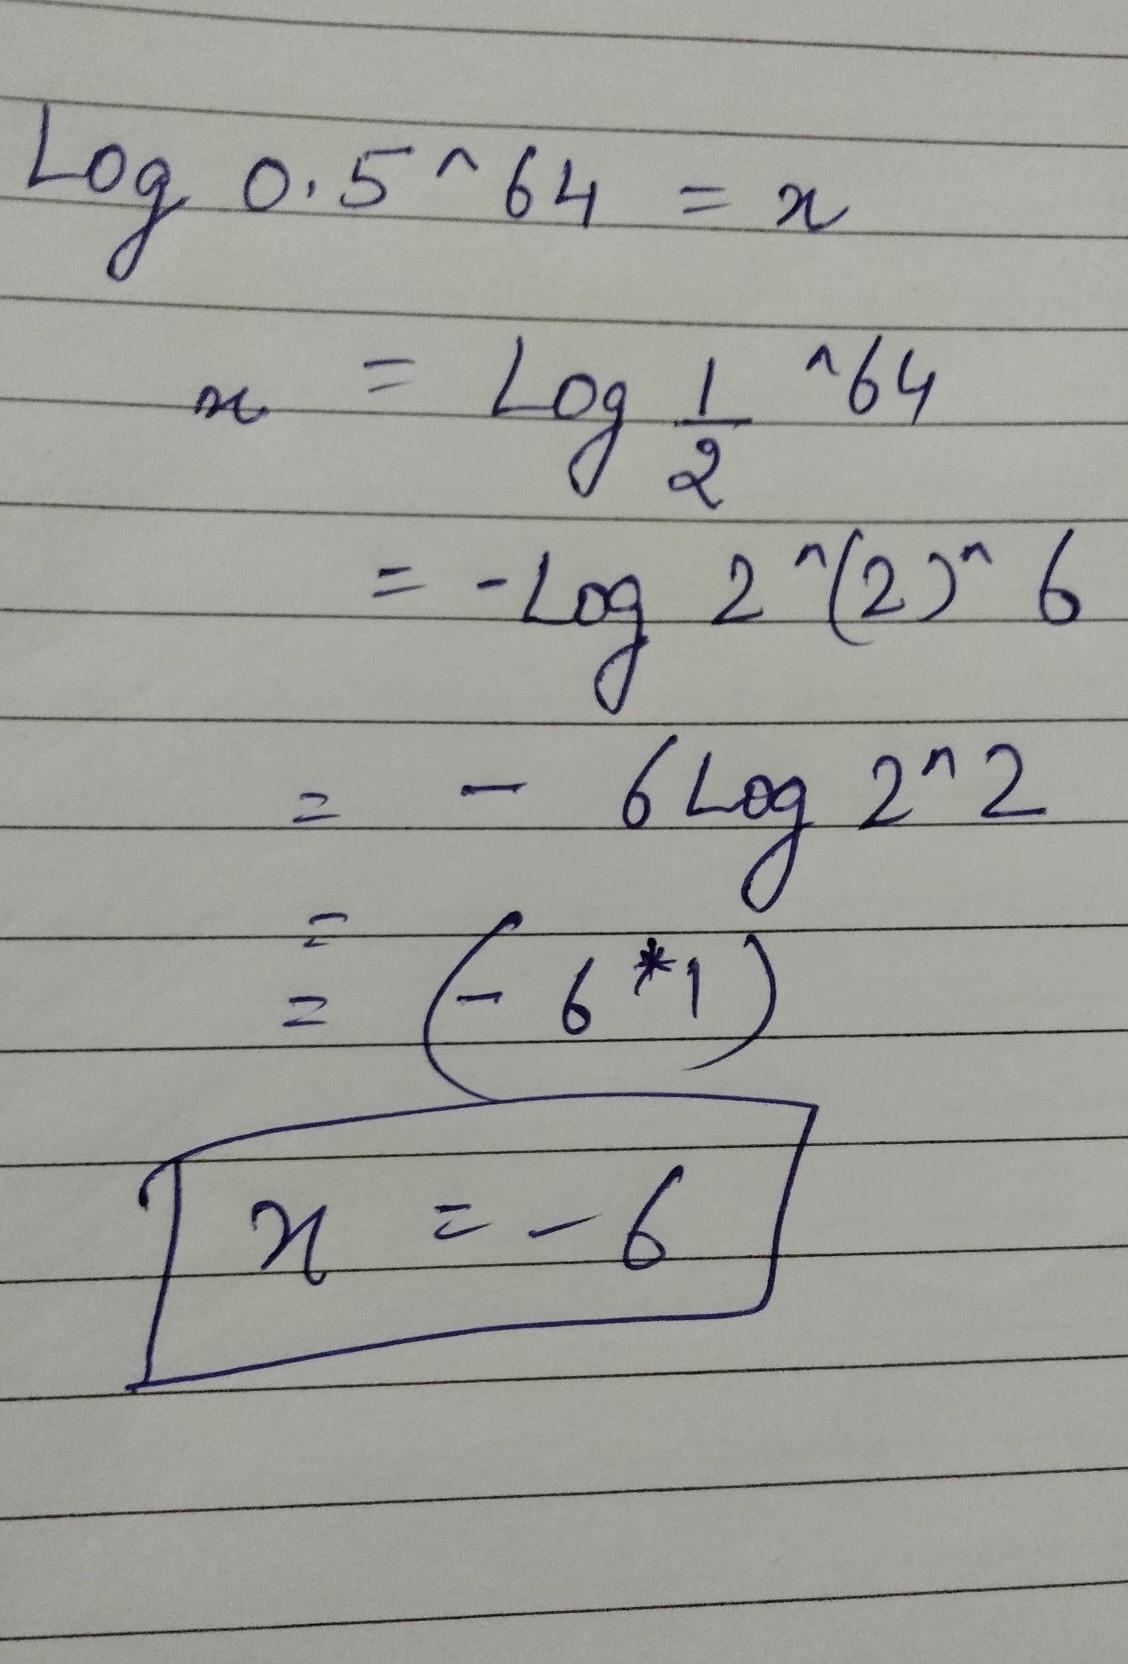 Log 0.5^64 = x
x = Log 1/2 ^64
= -Log 2^(2)^6
= - 6 Log 2^2
=
= (-6*1)
x = -6